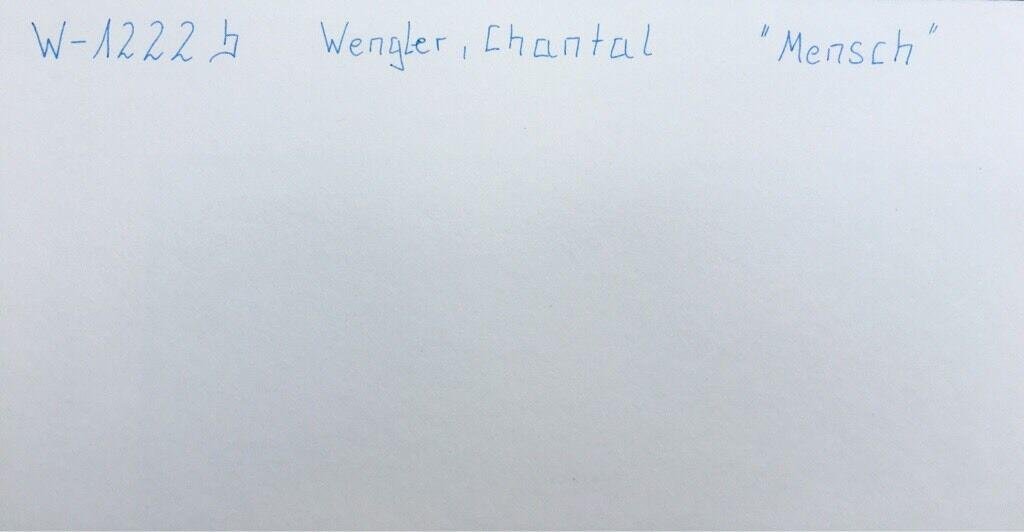 W-1222 Wengler, Chantal "Mensch"